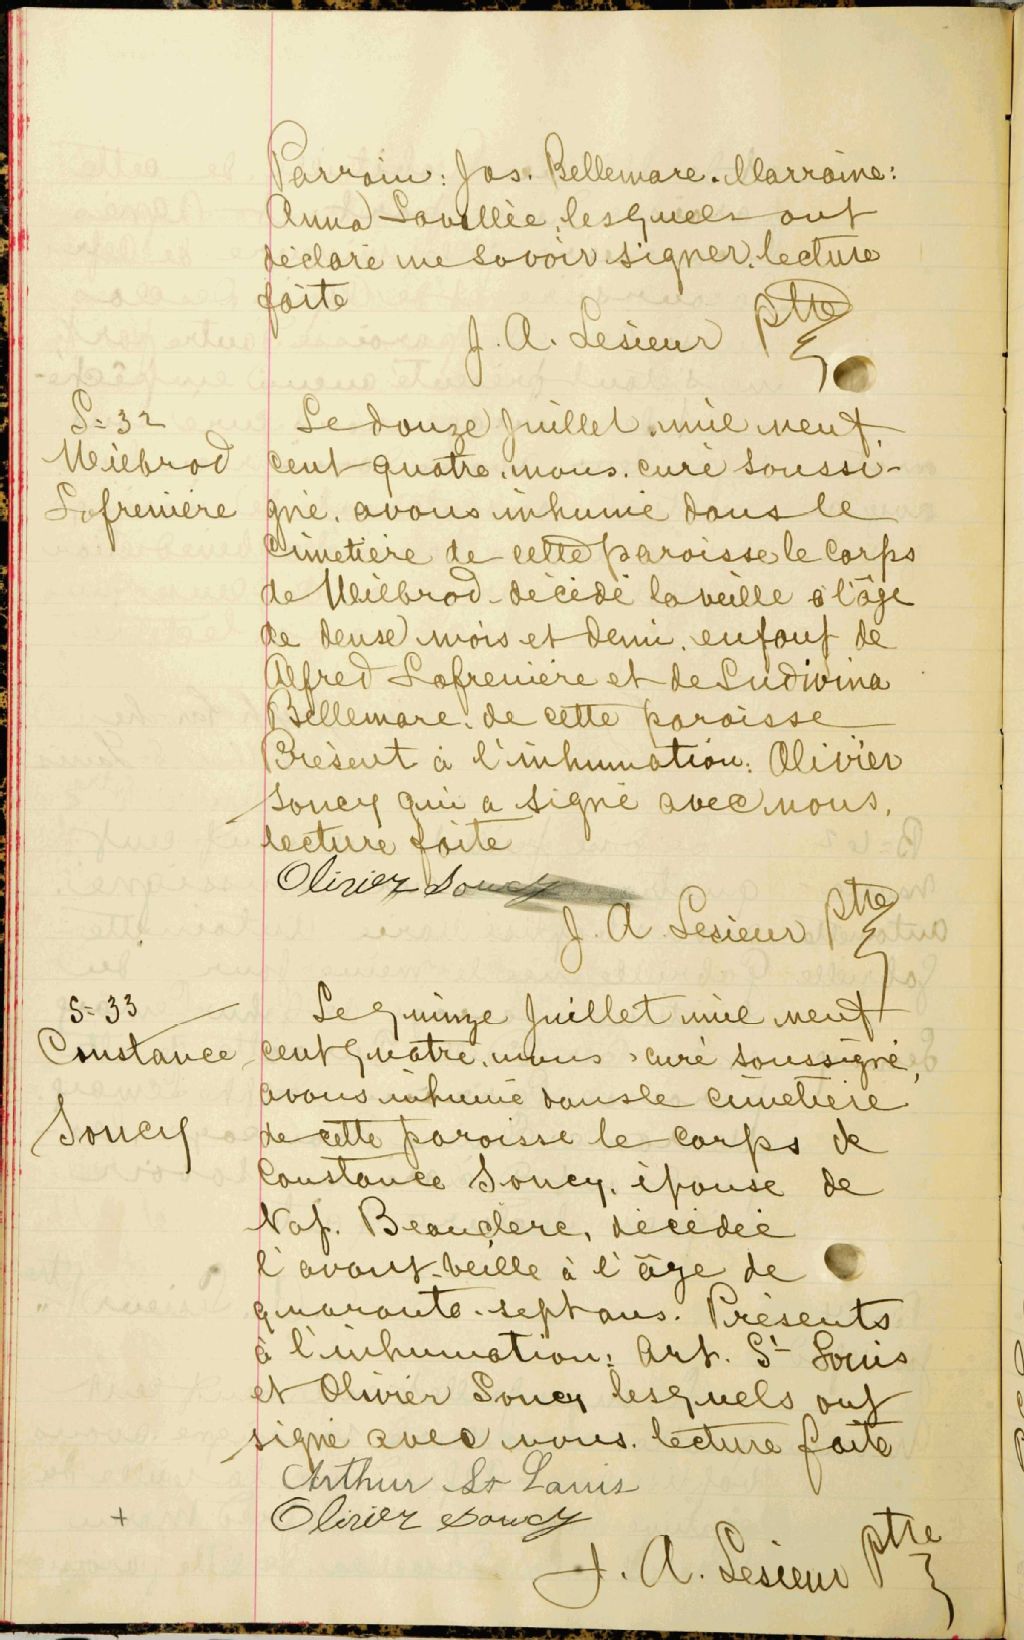 Parrain: Jos. Bellemare. Marraine:
Anna Lavallée, lesquels ont
déclaré ne savoir signer. lecture
faite
J. A. Lesieur Ptre
S=32
Wilbrod
Lafrenière
Le douze Juillet mil neuf
cent quatre, nous, curé soussi-
gné, avons inhumé dans le
cimetière de cette paroisse le corps
de Wilbrod décédé la veille à l'âge
de deuse mois et demi, enfant de
Alfred Lafrenière et de Ludivina
Bellemare, de cette paroisse
Présent à l'inhumation: Olivier
Soucy qui a signé avec nous,
lecture faite
Olivier Soucy
J. A Lesieur Ptre
S=33
Constance
Soucy
Le quinze Juillet mil neuf
cent quatre, nous, curé soussigné,
avons inhumé dans le cimetière
de cette paroisse le corps de
Constance Soucy, épouse de
Nap. Beauclere, décédée
l'avant-veille à l'âge de
quarante-sept ans. Présents
à l'inhumation: Art. St Louis
et Olivier Soucy lesquels ont
signé avec nous. lecture faite
Arthur St Louis
Olivier Soucy
+
J. A. Lesieur Ptre